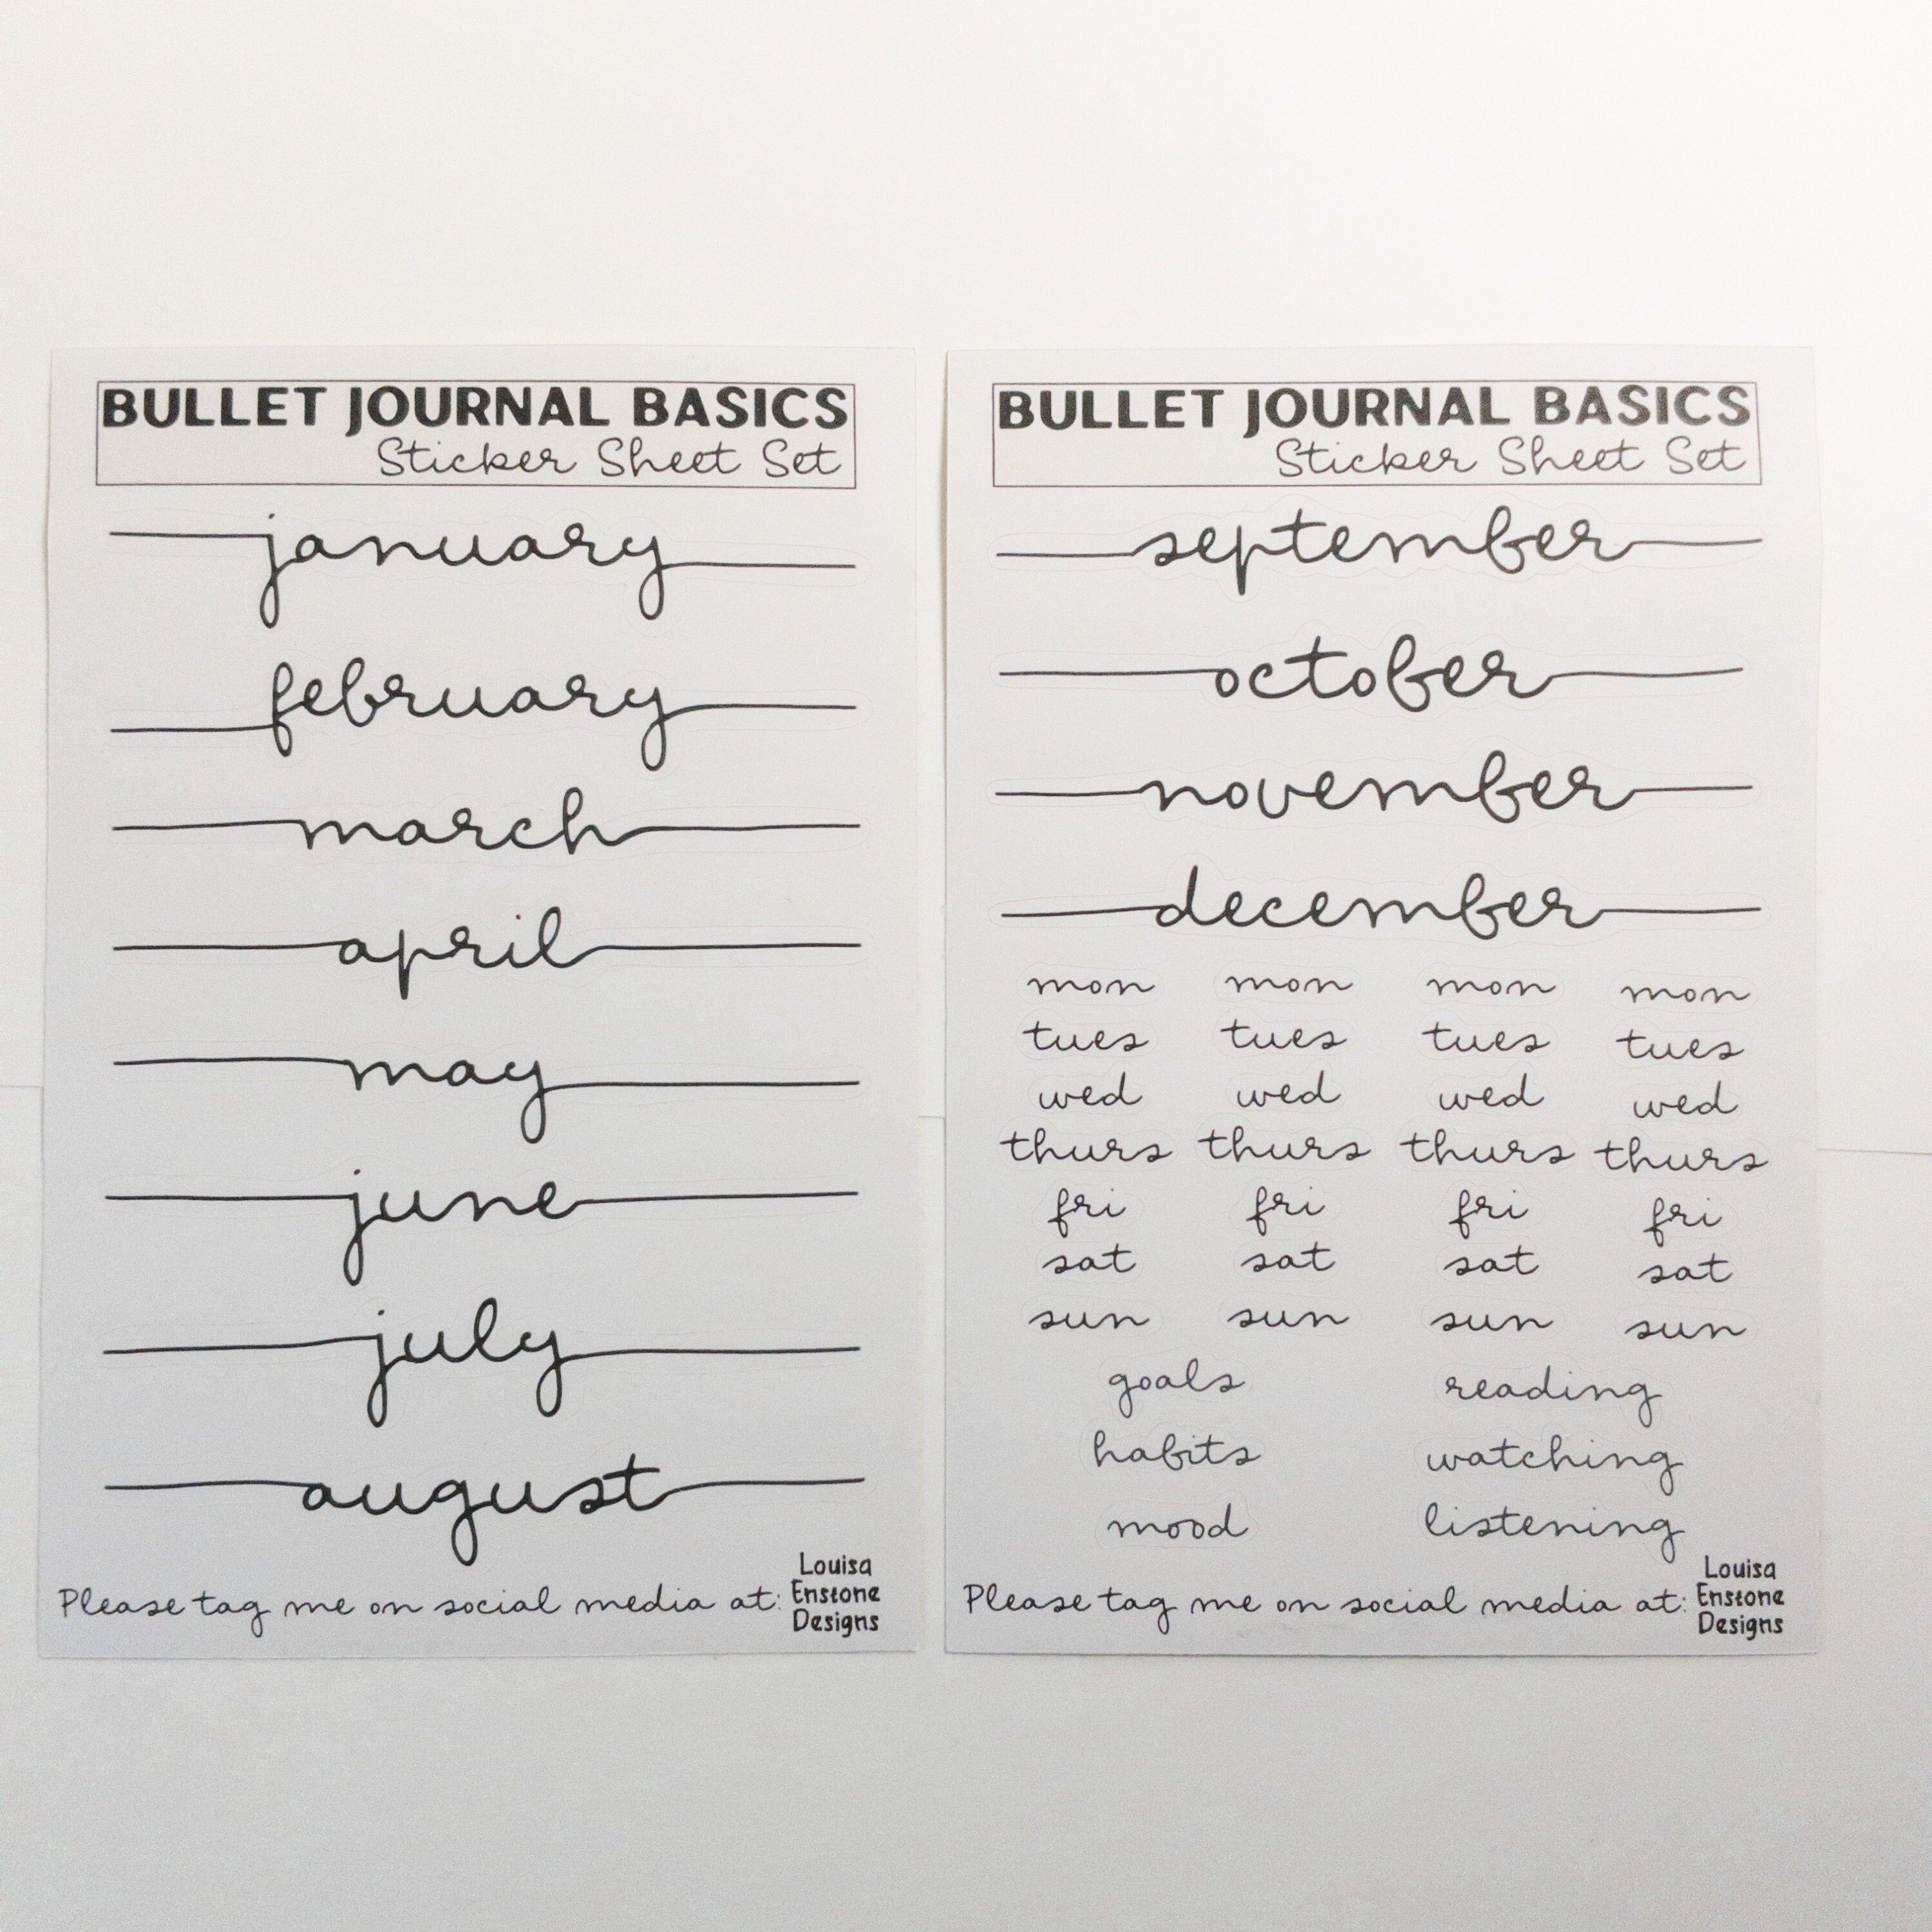 BULLET JOURNAL BASICS
Sticker Sheet Set
january
february
march
april
may
june
july
august
Please tag me on social media at:
Louisa
Enstone
Designs
BULLET JOURNAL BASICS
Sticker Sheet Set
september
october
november
december
mon mon mon mon
tues tues tues tues
wed wed wed wed
thurs thurs thurs thurs
fri fri fri fri
sat sat sat sat
sun sun sun sun
goals reading
habits watching
mood listening
Please tag me on social media at:
Louisa
Enstone
Designs